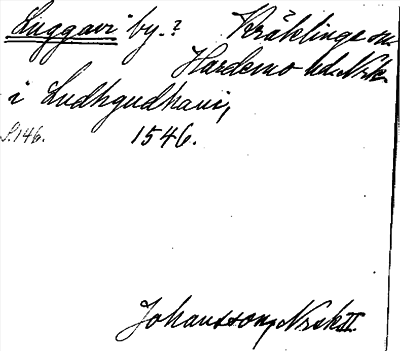 Luggavi by.? Kräklinge sn.
Hardemo hd. Nrk.
i Ludhgudhavi,
S. 146. 1546.
Johansson, Nrk II.